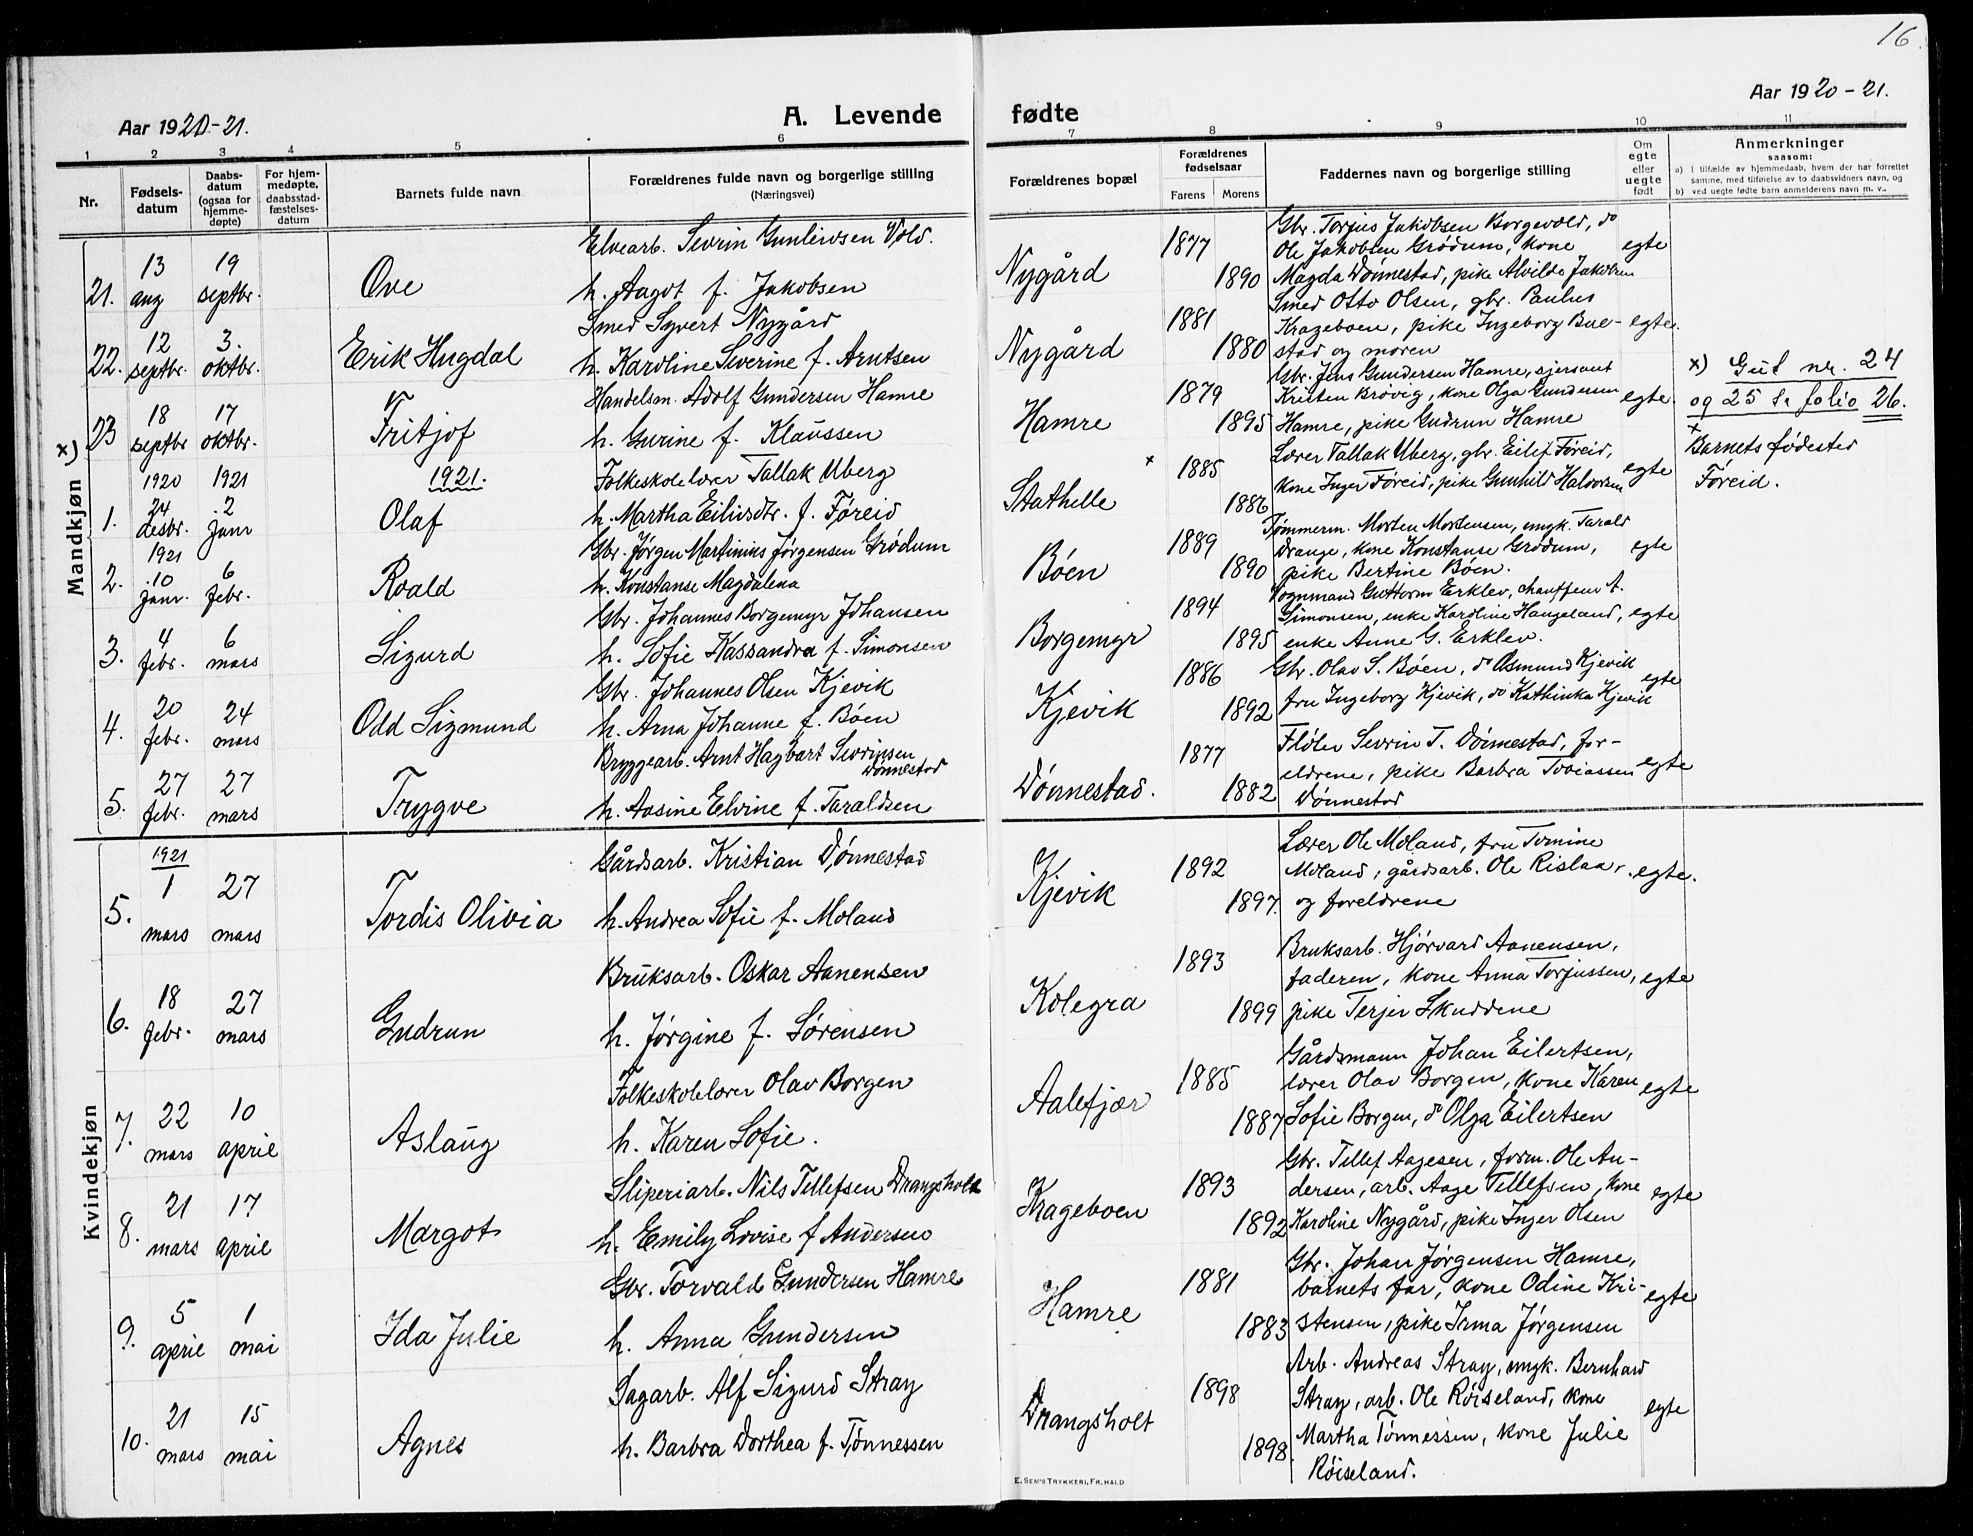 16.
Aar 1920-21. A. Levende fødte Aar 1920-21.
1 2 3 4 5 6 7 8 9 10 11
Nr. Fødsels-datum Daabs-datum (ogsaa for hjemme-døpte) For hjem-medøpte, daabsstad-fæstelses-datum Barnets fulde navn Forældrenes fulde navn og borgerlige stilling (Næringsvei) Forældrenes bopæl Forældrenes fødselsaar Farens Morens Faddernes navn og borgerlige stilling Om egte eller uegte født Anmerkninger saasom:
a) I tilfælde av hjemmedaab, hvem der har forrettet samme, med tilføielse av to daabsvidners navn, og
b) ved uegte fødte barn anmelderens navn m. v..
Mandkjøn
21. 13 aug 19 septbr. Ove
Elvearb. Sevrin Gunleivsen Vold.
h. Aagot f. Jakobsen
Nygård 1877 1890
Gbr. Torjus Jakobsen Borgevold, do
Ole Jakobsen Grødum, kone
Magda Dønnestad, pike Alvilde Jakobsen
egte
22. 12 septbr. 3. oktbr. Erik Hugdal
Smed Syvert Nygård
h. Karoline Severine f. Arntsen
Nygård 1881 1880
Smed Otto Olsen, gbr. Paulus
Krageboen, pike Ingeborg Bue-
stad og moren
egte.
x) 23 18 septbr 17 oktbr. Fritjof
Handelsm. Adolf Gundersen Hamre
h. Gurine f. Klaussen
Hamre 1879 1895
Gbr. Jens Gundersen Hamre, sjersant
Kristen Brøvig, kone Olga Gundersen
Hamre, pike Gudrun Hamre
egte.
x) Gut nr. 24
og 25 se folio 26.
1921.
1. 1920 24 desbr. 1921 2 janr Olaf
Folkeskolelærer Tallak Uberg
h. Martha Eilivsdtr. f. Føreid
Stathelle x 1885 1886
Lærer Tallak Uberg, gbr. Eilif Føreid,
kone Inger Føreid, pike Gunhild Halvorsen
egte
x
Barnets fødested
Føreid.
2. 1921 10 janr. 6 febr. Roald
Gbr. Jørgen Martinius Jørgensen Grødum
h. Konstanse Magdalena
Bøen 1889 1890
Tømmerm. Morten Mortensen, ungk. Tarald
Drange, kone Konstanse Grødum,
pike Bertine Bøen.
egte
3. 4 febr. 6 mars Sigurd
Gbr. Johannes Borgemyr Johansen
h. Sofie Kassandra f. Simonsen
Borgemyr 1894 1895
Vognmand Guttorm Erklev, chauffeur A.
Simonsen, enke Karoline Haugeland,
enke Anne G. Erklev.
egte
4. 20 febr. 24 mars Odd Sigmund
Gbr. Johannes Olsen Kjevik
h. Arna Johanne f. Bøen
Kjevik 1886 1892
Gbr. Olav S. Bøen, do Osmund Kjevik
fru Ingeborg Kjevik, do Kathinka Kjevik
egte
5. 27 febr. 27 mars Trygve
Bryggearb. Arnt Hagbart Sevrinsen
Dønnestad
h. Aasine Elvine f. Taraldsen
Dønnestad. 1877 1882
Fløter Sevrin T. Dønnestad, for-
eldrene, pike Barbra Tobiassen
Dønnestad
egte
Kvindekjøn
5. 1921 1 mars 27 mars Tordis Olivia
Gårdsarb. Kristian Dønnestad
h. Andrea Sofie f. Moland
Kjevik 1892 1897.
Lærer Ole Moland, fru Tomine
Moland, gårdsarb. Ole Rislaa,
og foreldrene
egte.
6. 18 febr. 27 mars Gudrun
Bruksarb. Oskar Aanensen
h. Jørgine f. Sørensen
Kolegra 1893 1899
Bruksarb. Hjørvard Aanensen,
faderen, kone Anna Torjussen,
pike Terjer Skuddene
egte
7. 22 mars 10 april Aslaug
Folkeskolelærer Olav Borgen
h. Karen Sofie.
Aalefjær 1885 1887
Gårdsmann Johan Eilertsen,
lærer Olav Borgen, kone Karen
Sofie Borgen, do Olga Eilertsen
egte
8. 21 mars 17 april Margot
Sliperiarb. Nils Tellefsen Drangsholt
h. Emily Lovise f Andersen
Krageboen 1893 1892
Gbr. Tellef Aagesen, form. Ole An-
dersen, arb. Aage Tellefsen, kone
Karoline Nygård, pike Inger Olsen
egte
9. 5 april 1 mai Ida Julie
Gbr. Torvald Gundersen Hamre
h. Anna Gundersen
Hamre 1881 1883
Gbr. Johan Jørgensen Hamre,
barnets far, kone Odine Kri-
stensen, pike Irma Jørgensen
egte
10. 21 mars 15 mai Agnes
Sagarb. Alf Sigurd Stray
h. Barbra Dorthea f. Tønnessen
Drangsholt 1898 1898.
Arb. Andreas Stray, ungk. Bernhard
Stray, arb. Ole Røiseland, kone
Martha Tønnessen, kone Julie
Røiseland.
egte
E. SEM'S TRYKKERI, FR.HALD